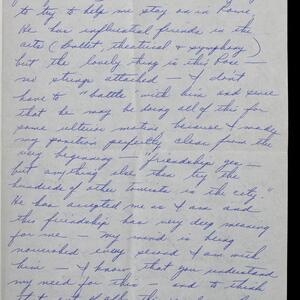 to try to help me stay on in Rome,
He has influential friends in the
arts (ballet, theatrical & symphony)
but the lovely thing is this Rose —
no strings attached — I don't
have to "battle" with him and sense
that he may be doing all of this for
some ulterior motive because I made
my position perfectly clear from the
very beginning — friendship yes —
but anything else then try the
hundreds of other tourists in the city."
He has accepted me as I am and
this friendship has very deep meaning
for me — my mind is being
nourished every second I am with
him — I know that you understand
my need for this — and to think